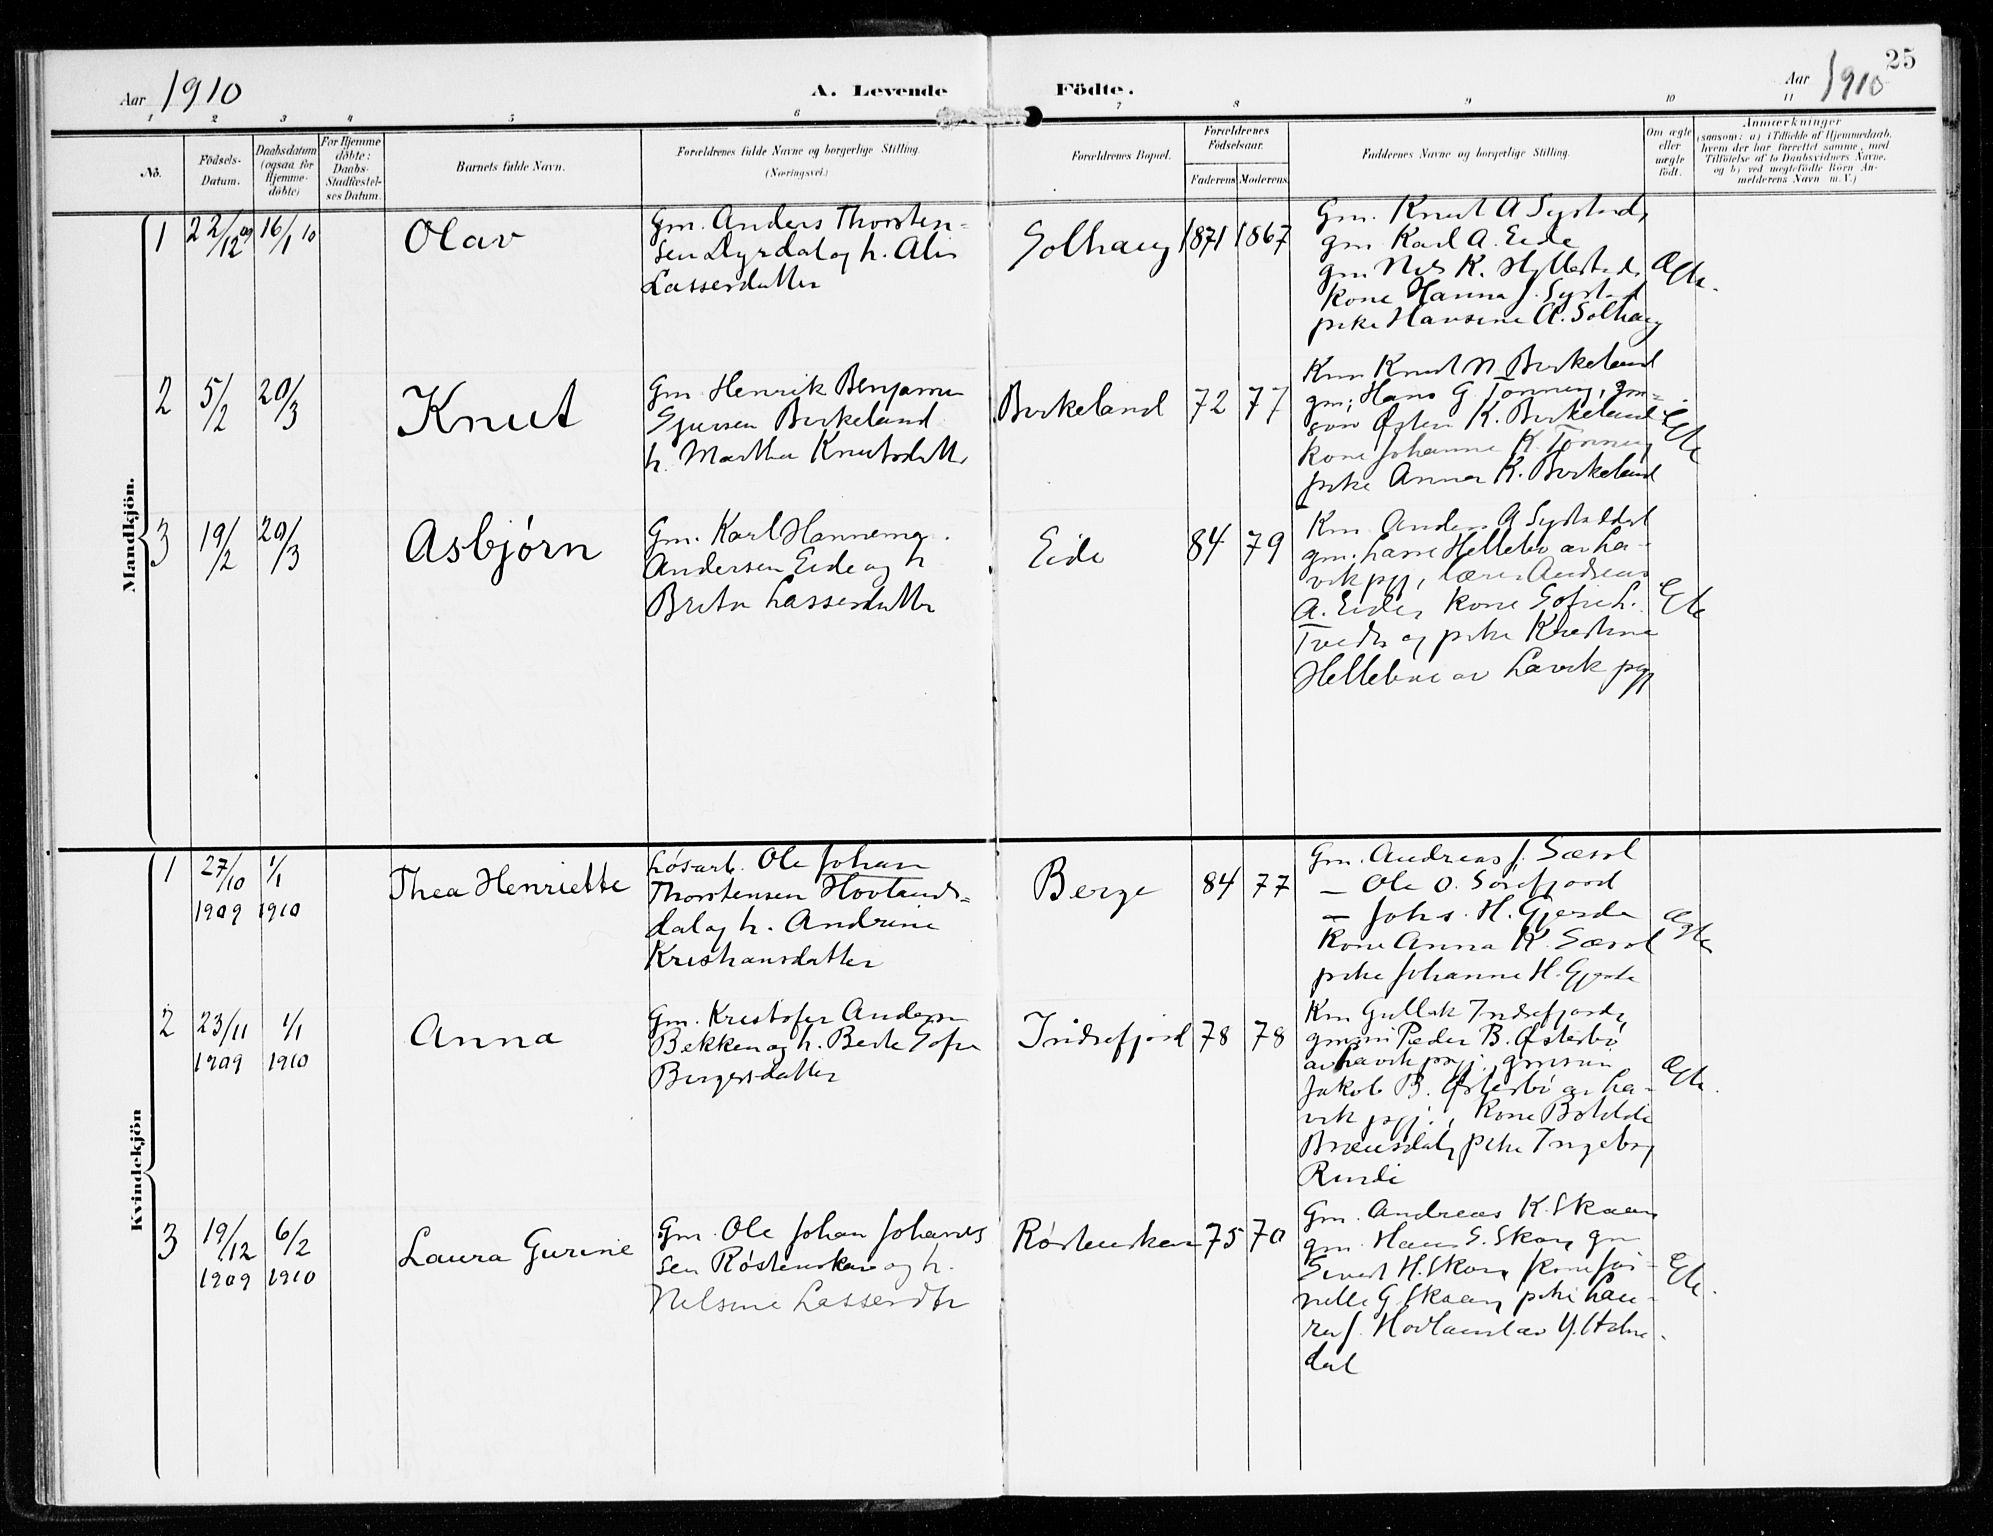 Aar 1910
A. Levende Födte.
Aar 1910
25
1 2 3 4 5 6 7 8 9 10 11
No.
Födsels-Datum.
Daabsdatum (ogsaa for Hjemme-döbte)
For Hjemme döbte: Daabs-Stadfæstel-ses Datum.
Barnets fulde Navn.
Forældrenes fulde Navne og borgerlige Stilling. (Næringsvei.)
Forældrenes Bopæl.
Forældrenes Födselsaar.
Faderens Moderens
Faddernes Navne og borgerlige Stilling.
Om ægte eller uægte födt.
Anmærkninger
(saasom: a) i Tilfælde af Hjemmedaab,
hvem der har forrettet samme, med
Tilföielse af to Daabsvidners Navne,
og b) ved uægtefödte Börn An-
melderens Navn m. V.)
Mandkjön.
1 22/12 09 16/1 10 Olav
Gm. Anders Thorsten-
sen Dyrdal og h.
Lassesdatter
Solhaug 1871 1867
Gm. Knut A Systad,
gm. Karl A. Eide
gm. Nils K. Hyllestad,
kone Hanna J. Systad
pike Hansine A. Solhaug
Ægte.
2 5/2 20/3 Knut
Gm. Henrik Benjamin
Sjursen Birkeland
h. Martha Knutsdatter
Birkeland 72 77
Km Knut N Birkeland
gm; Hans G. Tønning, gm-
søn Østen K. Birkeland
kone Johanne K. Tønning
pike Anna K. Birkeland
Egte
3 19/2 20/3 Asbjørn
Gm. Karl Hannemo
Andersen Eide og h
Brita Lassesdatter
Eide 84 79
Km Anders A
gm; Lasse Hellebø av La-
vik pgj, lærer Andreas
A. Eide, kone Sofie L.
og pike Kristine
Hellebø av Lavik pgj
Egte
Kvindekjön
1 27/10 1909 1/1 1910 Thea Henriette
Løsarb. Ole Johan
Thorstensen Hovlands-
dal og h. Andrine
Kristiansdatter
Berge 84 77
Gm. Andreas J. Sæsol
— Ole O. Sørefjord
— Johs. H. Gjerde
kone Anna K. Sæsol
pike Johanne H. Gjerde
Ægte
2 23/11 1909 1/1 1910 Anna
Gm. Kristofer Andersen
Bekken og h. Berte Sofie
Birgersdatter
Indrefjord 78 78
Km Gullik Indrefjord,
Peder B. Østerbø
av Lavik pgj., gmsøn
Jakob B. Østerbø av La-
vik pgj., kone Bolilde
Brænsdal, pike Ingeborg
Risnde
Ægte.
3 19/12 1909 6/2 1910 Laura Gurine
Gm. Ole Johan Johannes
sen Røstenskar og h.
Nelsine Lassesdtr
Røstenskar 75 70
Gm. Andreas K. Skaar
gm. Hans S. Skor, gm
Sivert H. Skor, kone Jør-
nelle G Skaar, pike Lau-
ra J. Hovland av Y. Holme-
dal
Egte.